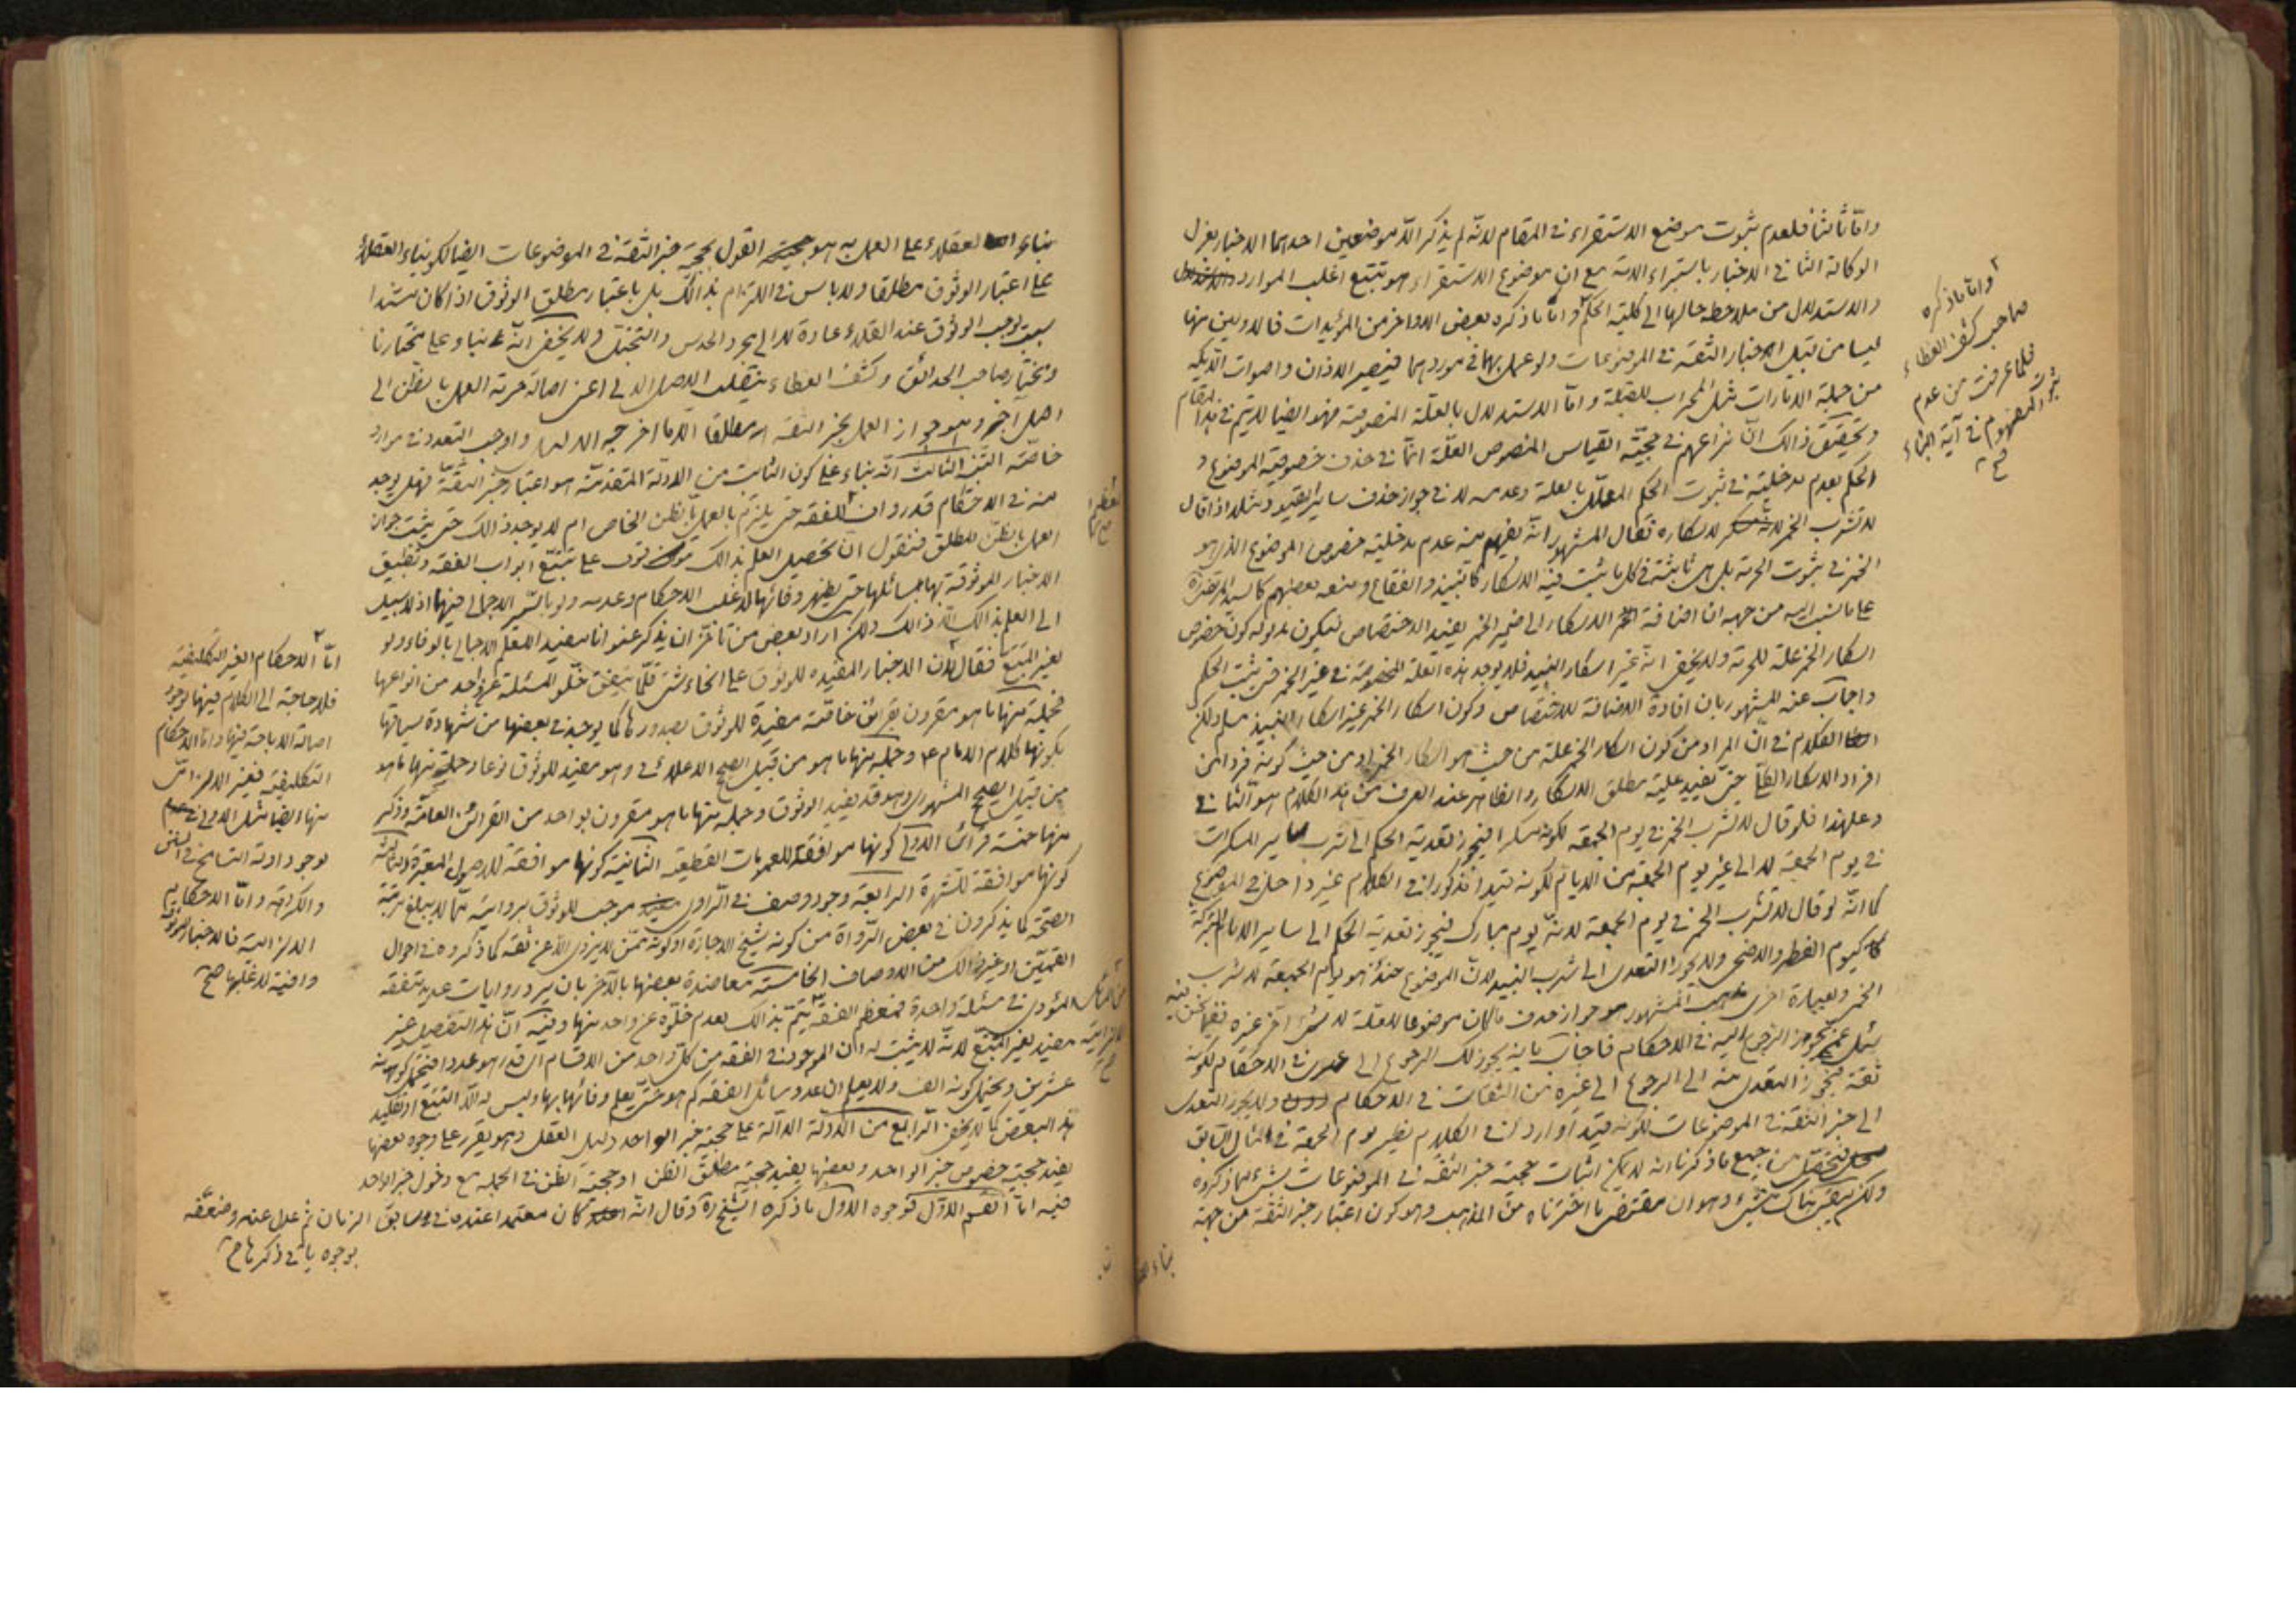 واما ثالثا فلعدم ثبوت موضع الاستقراء في المقام لانه لم يذكر الا موضعين احدهما الاخبار بعزل
الوكالة الثاني الاخبار باستبراء الامة مع ان موضوع الاستقراء هو تتبع اغلب الموارد
والاستدلال من ملاحظة حالها الى كلية الحكم واما ما ذكره بعض الاواخر من المؤيدات فالاوليين منها
ليسا من قبيل اخبار الثقة في الموضوعات ولو عمل بهما في موردهما فيصير الاذان واصوات الديكة
من جملة الامارات مثل المحراب للقبلة واما الاستدلال بالعلة المنصوصة فهو ايضا لا يتم في هذا المقام
وتحقيق ذالك ان نزاعهم في حجية القياس المنصوص العلة انما في حذف خصوصية الموضوع و
الحكم بعدم مدخليته في ثبوت الحكم المعلل بالعلة وعدمه لا في جواز حذف ساير القيود مثلا اذا قال
لا تشرب الخمر لاسكاره فقال المشهور انه يفهم منه عدم مدخلية خصوص الموضوع الذي هو
الخمر في ثبوت الحرمة بل هي ثابتة في كل ما يثبت فيه الاسكار كالنبيذ والفقاع ومنعه بعضهم كالسيد المرتضى ره
على ما نسب اليه من جهة ان اضافة الاسكار الى ضمير الخمر يفيد الاختصاص فيكون مدلوله كون خصوص
اسكار الخمر علة للحرمة ولا يخفى انه غير اسكار النبيذ فلا يوجد هذه العلة المنصوصة في غير الخمر حتى يثبت الحكم
واجاب عنه المشهور بان افادة الاضافة للاختصاص وكون اسكار الخمر غير اسكار النبيذ مسلم ولكن
الكلام في ان المراد من كون اسكار الخمر علة من حيث هو اسكار الخمر او من حيث كونه فردا من
افراد الاسكار الكلي حتى يفيد علية مطلق الاسكار والظاهر عند العرف من هذا الكلام هو الثاني
وعلى هذا فلو قال لا تشرب الخمر في يوم الجمعة لكونه مسكرا فيجوز تعدية الحكم الى شرب ساير المسكرات
في يوم الجمعة لا الى غير يوم الجمعة من الايام لكونه قيدا مذكورا في الكلام غير داخل في الموضوع
كما انه لو قال لا تشرب الخمر في يوم الجمعة لانه يوم مبارك فيجوز تعدية الحكم الى ساير الايام المتبركة
كيوم الفطر والاضحى ولا يجوز التعدي الى شرب النبيذ لان الموضوع حينئذ هو يوم الجمعة لا شرب
الخمر وبعبارة اخرى المشهور هو جواز حذف ما كان موضوعا للعلة لا شيء آخر غيره ففيما نحن فيه
سئل عمن يجوز الرجوع اليه في الاحكام فاجاب بانه يجوز لك الرجوع الى عمرى في الاحكام لكونه
ثقة فيجوز التعدي منه الى الرجوع الى غيره من الثقات في الاحكام ولا يجوز التعدي
الى خبر الثقة في الموضوعات لكونه قيدا واردا في الكلام نظير يوم الجمعة في المثال السابق
فتحصل من جميع ما ذكرنا انه لا يمكن اثبات حجية خبر الثقة في الموضوعات بشيء مما ذكروه
ولكن بقي هناك شيء وهو ان مقتضى ما اخترناه من المذهب وهو كون اعتبار خبر الثقة من جهة
واما ما ذكره
صاحب كشف الغطاء
فلما عرفت من عدم
ثبوت المفهوم في آية النباء
صح
بناء العقلاء على العمل به هو القول بحجية خبر الثقة في الموضوعات ايضا لكن بناء العقلاء
على اعتبار الوثوق مطلقا ولا باس في التزام بذالك بل باعتبار مطلق الوثوق اذا كان مستندا
بسبب يوجب الوثوق عند العقلاء عادة لا الى مجرد الحدس والتخيل ولا يخفى انه بناء على مختارنا
ومختار صاحب الحدائق وكشف الغطاء ينقلب الاصل الاولى اعنى اصالة حرمة العمل بالظن الى
اصل آخر وهو جواز العمل بخبر الثقة مطلقا الا ما اخرجه الدليل واوجب التعدد في موارد
خاصة التنبيه الثالث انه بناء على كون الثابت من الادلة المتقدمة هو اعتبار خبر الثقة فهل يوجد
منه في الاحكام قدر واف الفقه حتى يلتزم بالعمل بالظن الخاص ام لا يوجد ذالك حتى يثبت جواز
العمل بالظن المطلق فنقول ان تحصيل العلم بذالك موقوف على تتبع ابواب الفقه وتطبيق
الاخبار الموثوقة بها بمسائلها حتى يظهر وفائها لاغلب الاحكام وعدمه ولو بالسير الاجمالى فيها اذ لا سبيل
الى العلم بذالك الا ذالك ولكن اراد بعض من تأخر ان يذكر عنوانا يفيد العلم الاجمالى بالوفاء ولو
بغير التتبع فقال ان الاخبار المفيدة للوثوق على انحاء شتى قلما يتفق خلو المسئلة عن واحد من انواعها
فجملة منها ما هو مقرون بقرائن خاصة مفيدة للوثوق بصدورها كما يوجد في بعضها من شهادة سياقها
بكونها كلام الامام ع وجملة منها ما هو من قبيل الصحيح الاعلائى وهو مفيد للوثوق نوعا وجملة منها ما هو
من قبيل الصحيح المشهورى وهو قد يفيد الوثوق وجملة منها ما هو مقرون بواحد من القرائن العامة وذكر
منها خمسة قرائن الاولى كونها موافقة للعمومات القطعية الثانية كونها موافقة للاصول المعتبرة الثالثة
كونها موافقة للشهرة الرابعة وجود وصف في الراوى موجب للوثوق بروايته مما لا يبلغ مرتبة
الصحة كما يذكرون في بعض الرواة من كونه شيخ الاجازة او كونه ممن لا يروى الا عن ثقة كما ذكروه في احوال
القميين او غير ذالك من الاوصاف الخامسة معاضدة بعضها بالآخر بان يرد روايات عديدة متفقة
المؤدى في مسئلة واحدة فمعظم الفقه يتم بذالك بعدم خلوه عن واحد منها وفيه ان هذا التفصيل غير
مفيد بغير التتبع لانه لا يثبت به ان الموجود في الفقه من كل واحد من الاقسام اى قدر هو عددا فيحتمل كونه
عشرين ويحتمل كونه الف ولا يعلم ان عدد مسائل الفقه كم هو حتى يعلم وفائها بها وليس له الا التتبع او تقليد
هذا البعض كما لا يخفى الرابع من الادلة الدالة على حجية خبر الواحد دليل العقل وهو يقرر على وجوه بعضها
يفيد حجية خصوص خبر الواحد وبعضها يفيد حجية مطلق الظن او حجية الظن في الجملة مع دخول خبر الواحد
فيه اما القسم الاول فوجوه الاول ما ذكره الشيخ ره وقال انه كان معتمدا عنده في سابق الزمان ثم عدل عنه وضعفه
بوجوه يأتى ذكرها صح
اما الاحكام الغير التكليفية
فلا حاجة الى الكلام فيها لوجود
اصالة الاباحة فيها واما الاحكام
التكليفية فغير الالزامى
منها ايضا مثل الاولى في
لوجود ادلة التسامح في السنن
والكراهة واما الاحكام
الالزامية فالاخبار الموثوقة
وافية لاغلبها صح